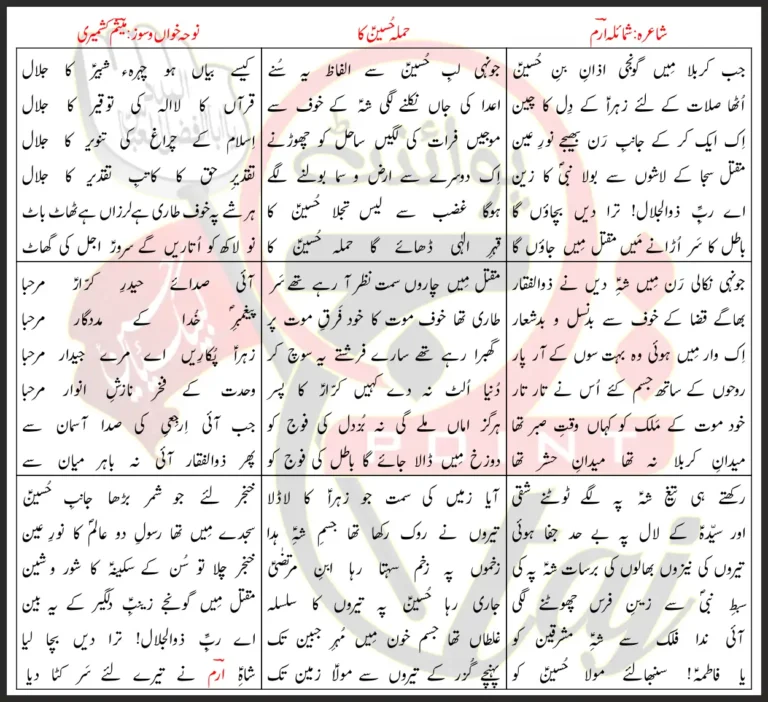 شاعرہ: شمائلہ ارمؔ
حملہ حُسینؑ کا
نوحہ خواں و سوز: میثم کشمیری
جب کربلا میں گونجی اذانِ بنِ حُسینؑ
اُٹھا صلات کے لئے زہراؑ کے دِل کا چین
اِک ایک کر کے جانبِ رَن بھیجے نورِ عین
مقتل سجا کے لاشوں سے بولا نبیؐ کا زین
اے ربِّ ذوالجلال! ترا دیں بچاؤں گا
باطل کا سَر اُڑانے مَیں مقتل میں جاؤں گا
جونہی لبِ حُسینؑ سے الفاظ یہ سُنے
اعدا کی جاں نکلنے لگی شہؑ کے خوف سے
موجیں فرات کی لگیں ساحل کو چھوڑنے
اِک دوسرے سے ارض و سما بولنے لگے
ہوگا غضب سے لیس تجلا حُسینؑ کا
قہرِ الٰہی ڈھائے گا حملہ حُسینؑ کا
کیسے بیاں ہو چہرہء شبیرؑ کا جلال
قرآں کا لاالہ کی توقیر کا جلال
اِسلام کے چراغ کی تنویر کا جلال
تقدیرِ حق کا کاتبِ تقدیر کا جلال
ہر شے پہ خوف طاری ہے لرزاں ہے ٹھاٹ باٹ
نو لاکھ کو اُتاریں گے سرورؑ اجل کی گھاٹ
جونہی نکالی رَن میں شہِؑ دیں نے ذوالفقار
بھاگے قضا کے خوف سے بدنسل و بدشعار
اِک وار میں ہوئی وہ بہت سوں کے آر پار
روحوں کے ساتھ جسم کئے اُس نے تار تار
خود موت کے مَلک کو کہاں وقتِ صبر تھا
میدانِ کربلا نہ تھا میدانِ حشر تھا
مقتل میں چاروں سمت نظر آ رہے تھے سَر
طاری تھا خوف موت کا خود فَرقِ موت پر
گھبرا رہے تھے سارے فرشتے یہ سوچ کر
دُنیا اُلٹ نہ دے کہیں کرّارؑ کا پسر
ہرگز اماں ملے گی نہ بُزدل کی فوج کو
دوزخ میں ڈالا جائے گا باطل کی فوج کو
آئی صدائے حیدرِ کرّارؑ مرحبا
پیغمبرِؐ خُدا کے مددگار مرحبا
زہراؑ پُکاریں اے مرے جیدار مرحبا
وحدت کے فخر نازشِ انوار مرحبا
جب آئی اِرجِعِی کی صدا آسمان سے
پھر ذوالفقار آئی نہ باہر میان سے
رکھتے ہی تیغ شہؑ پہ لگے ٹوٹنے شقی
اور سیّدہؑ کے لال پہ بے حد جفا ہوئی
تیروں کی نیزوں بھالوں کی برسات شہؑ پہ کی
سبطِ نبیؐ سے زینِ فرس چھوٹنے لگی
آئی ندا فلک سے شہِؑ مشرقین کو
یا فاطمہؑ! سنبھالئے مولا حُسینؑ کو
آیا زمیں کی سمت جو زہراؑ کا لاڈلا
تیروں نے روک رکھا تھا جسمِ شہِؑ ہدا
زخموں پہ زخم سہتا رہا ابنِ مرتضیٰؑ
جاری رہا حُسینؑ پہ تیروں کا سلسلہ
غلطاں تھا جسم خون میں مُہرِ جبین تک
پہنچے گُزر کے تیروں سے مولاؑ زمین تک
خنجر لئے جو شمر بڑھا جانبِ حُسینؑ
سجدے میں تھا رسولِؐ دو عالم کا نورِ عین
خنجر چلا تو سُن کے سکینہؑ کا شور و شین
مقتل میں گونجے زینبِؑ دلگیر کے یہ بین
اے ربِّ ذوالجلال! ترا دیں بچا لیا
شاہِؑ ارمؔ نے تیرے لئے سَر کٹا دیا
POINT